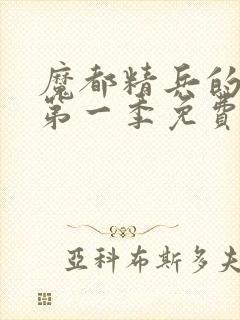 魔都精兵的
第一季免費
亞科布斯多夫